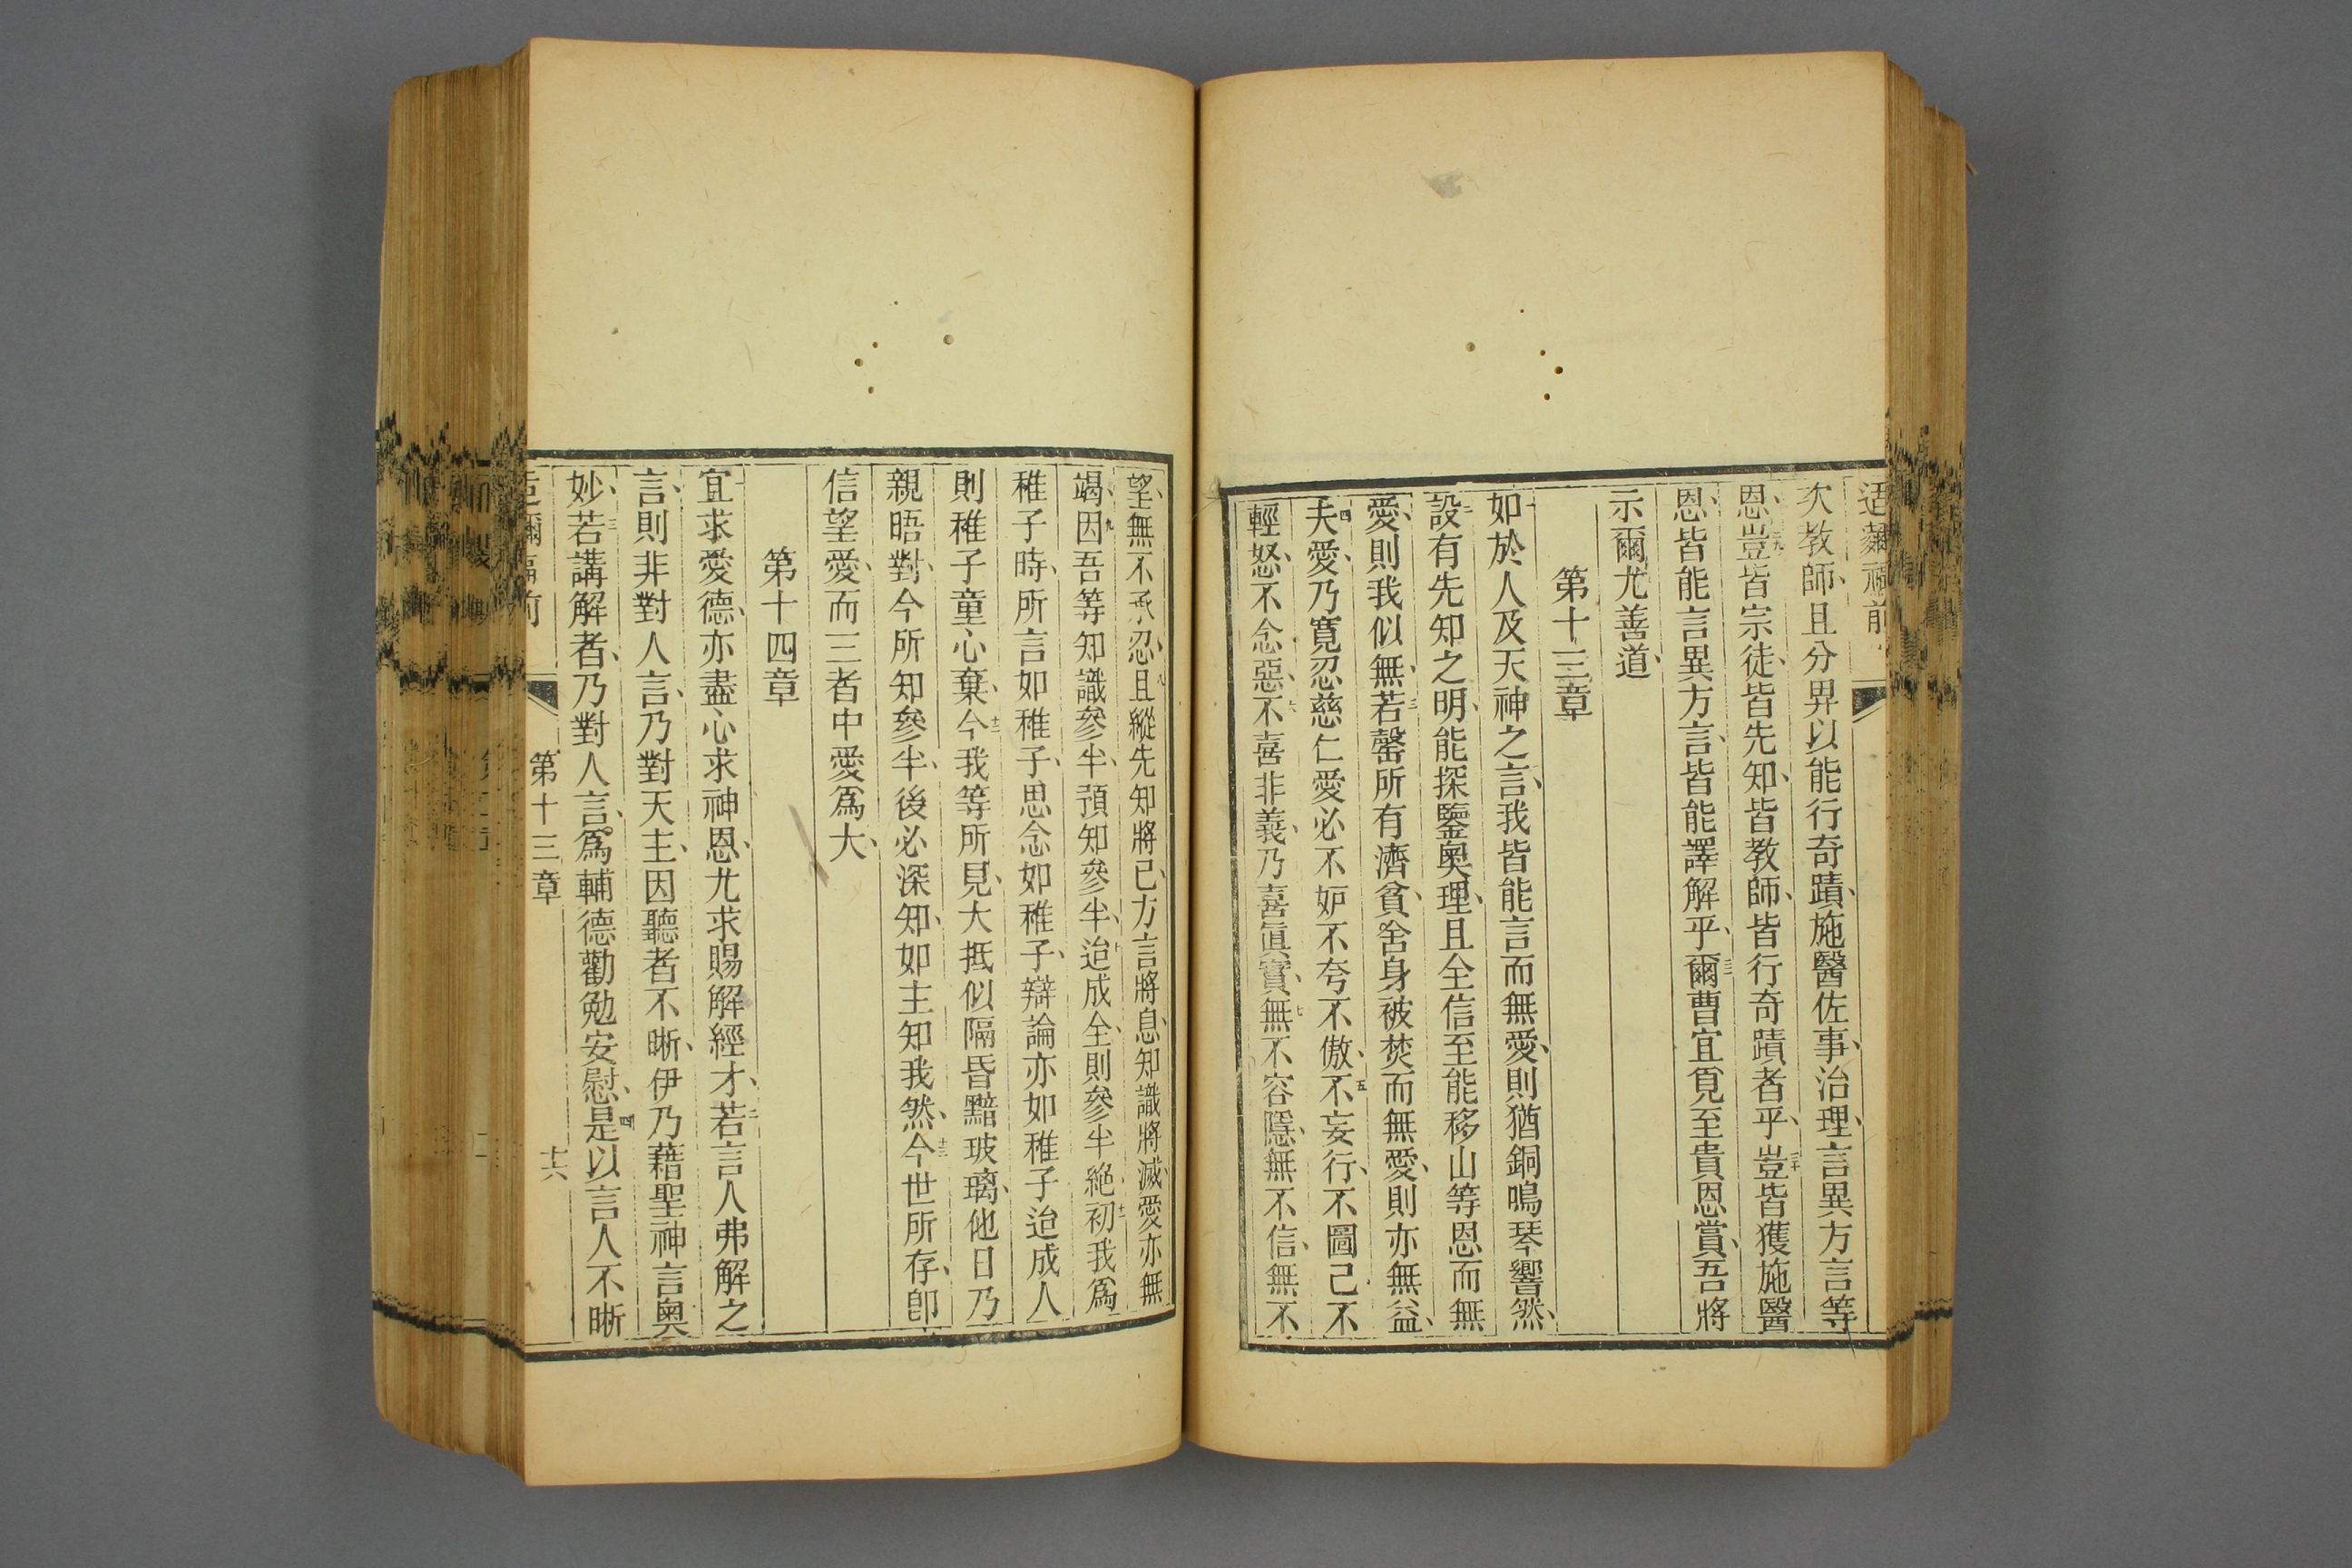 适爾福前
次教師、且分畀以能行奇蹟、施醫佐事、治理、言異方言等
恩、豈皆宗徒、皆先知、皆教師、皆行奇蹟者乎、豈皆獲施醫
恩、皆能言異方言、皆能譯解乎、爾曹宜覓至貴恩賞、吾將
示爾尤善道、
第十三章
如於人及天神之言、我皆能言而無愛、則猶銅鳴琴響然、
設有先知之明、能探鑒奧理、且全信至能移山等恩而無
愛、則我似無、若罄所有濟貧、舍身被焚而無愛、則亦無益、
夫愛、乃寬忍慈仁愛必不妒不夸不傲、不妄行、不圖己不
輕怒、不念惡、不喜非義、乃喜眞實、無不容隱、無不信、無不
望、無不承忍、且縱先知將已、方言將息、知識將滅、愛亦無
竭、因吾等知識參半、預知參半、迨成全、則參半絕、初我爲
稚子時、所言如稚子、思念如稚子、辯論亦如稚子、迨成人
則稚子童心棄、今我等所見、大抵似隔昏黯玻璃、他日乃
親晤對、今所知參半、後必深知、如主知我然、今世所存、卽
信望愛、而三者中愛爲大、
第十四章
宜求愛德、亦盡心求神恩、尤求賜解經才、若言人弗解之
言、則非對人言、乃對天主、因聽者不晰、伊乃藉聖神言奧
妙、若講解者、乃對人言、爲輔德勸勉安慰、是以言人不晰
第十三章
十六